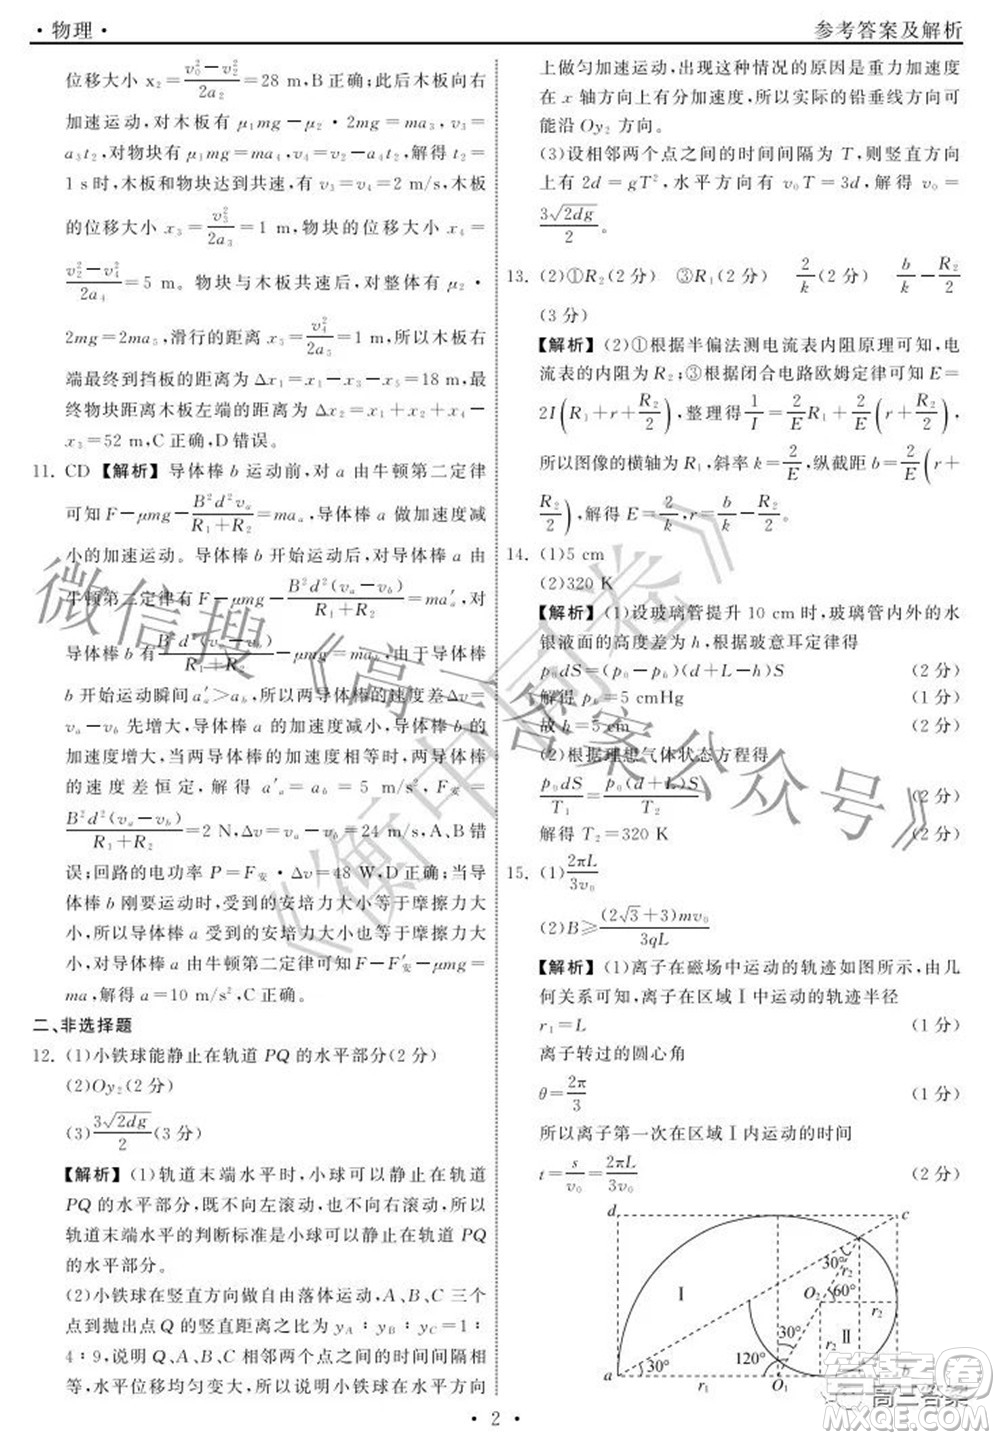 · 物理 ·
参考答案及解析
位移大小 x₂=\frac{v_0^2-v_2^2}{2a_2}=28 m,B 正确;此后木板向右
加速运动,对木板有 μ₁mg－μ₂·2mg=ma₃,v₃=
a₃t₂,对物块有 μ₁mg=ma₄,v₄=v₂－a₄t₂,解得 t₂=
1 s时,木板和物块达到共速,有 v₃=v₄=2 m/s,木板
的位移大小 x₃=\frac{v_3^2}{2a_3}=1 m,物块的位移大小 x₄=
\frac{v_2^2-v_4^2}{2a_4}=5 m。物块与木板共速后,对整体有 μ₂·
2mg=2ma₅,滑行的距离 x₅=\frac{v_4^2}{2a_5}=1 m,所以木板右
端最终到挡板的距离为 Δx₁=x₁－x₃－x₅=18 m,最
终物块距离木板左端的距离为 Δx₂=x₁+x₂+x₄－
x₃=52 m,C 正确,D 错误。
11. CD 【解析】导体棒 b 运动前,对 a 由牛顿第二定律
可知 F－μmg－\frac{B^2d^2v_a}{R_1+R_2}=ma_a,导体棒 a 做加速度减
小的加速运动。导体棒 b 开始运动后,对导体棒 a 由
牛顿第二定律有 F－μmg－\frac{B^2d^2(v_a-v_b)}{R_1+R_2}=ma'_a,对
导体棒 b 有\frac{B^2d^2(v_a-v_b)}{R_1+R_2}－μmg=ma_b,由于导体棒
b 开始运动瞬间 a'_a>a_b,所以两导体棒的速度差Δv=
v_a－v_b 先增大,导体棒 a 的加速度减小,导体棒 b 的
加速度增大,当两导体棒的加速度相等时,两导体棒
的速度差恒定,解得 a'_a=a_b=5 m/s²,F_安=
\frac{B^2d^2(v_a-v_b)}{R_1+R_2}=2 N,Δv=v_a－v_b=24 m/s,A、B 错
误;回路的电功率 P=F_安·Δv=48 W,D 正确;当导
体棒 b 刚要运动时,受到的安培力大小等于摩擦力大
小,所以导体棒 a 受到的安培力大小也等于摩擦力大
小,对导体棒 a 由牛顿第二定律可知 F－F'_安－μmg=
ma,解得 a=10 m/s²,C 正确。
二、非选择题
12. (1)小铁球能静止在轨道 PQ 的水平部分(2 分)
(2)Oy₂(2 分)
(3)\frac{3\sqrt{2dg}}{2}(3 分)
【解析】(1)轨道末端水平时,小球可以静止在轨道
PQ 的水平部分,既不向左滚动,也不向右滚动,所以
轨道末端水平的判断标准是小球可以静止在轨道 PQ
的水平部分。
(2)小铁球在竖直方向做自由落体运动,A、B、C 三个
点到抛出点 Q 的竖直距离之比为 y_A∶y_B∶y_C=1∶
4∶9,说明 Q、A、B、C 相邻两个点之间的时间间隔相
等,水平位移均匀变大,所以说明小铁球在水平方向
上做匀加速运动,出现这种情况的原因是重力加速度
在 x 轴方向上有分加速度,所以实际的铅垂线方向可
能沿 Oy₂ 方向。
(3)设相邻两个点之间的时间间隔为 T,则竖直方向
上有 2d=gT²,水平方向有 v₀T=3d,解得 v₀=
\frac{3\sqrt{2dg}}{2}。
13. (2)①R₂(2 分) ③R₁(2 分) \frac{2}{k}(2 分) \frac{b}{k}－\frac{R_2}{2}
(3 分)
【解析】(2)①根据半偏法测电流表内阻原理可知,电
流表的内阻为 R₂;③根据闭合电路欧姆定律可知 E=
2I(R₁+r+\frac{R_2}{2}),整理得\frac{1}{I}=\frac{2}{E}R₁+\frac{2}{E}(r+\frac{R_2}{2}),
所以图像的横轴为 R₁,斜率 k=\frac{2}{E},纵截距 b=\frac{2}{E}(r+
\frac{R_2}{2}),解得 E=\frac{2}{k},r=\frac{b}{k}－\frac{R_2}{2}。
14. (1)5 cm
(2)320 K
【解析】(1)设玻璃管提升 10 cm时,玻璃管内外的水
银液面的高度差为 h,根据玻意耳定律得
p₀dS=(p₀－p_h)(d+L－h)S (2 分)
解得 p_h=5 cmHg (1 分)
故 h=5 cm (2 分)
(2)根据理想气体状态方程得
\frac{p_0dS}{T_1}=\frac{p_0(d+L)S}{T_2} (2 分)
解得 T₂=320 K (2 分)
15. (1)\frac{2πL}{3v_0}
(2)B≥\frac{(2\sqrt{3}+3)mv_0}{3qL}
【解析】(1)离子在磁场中运动的轨迹如图所示,由几
何关系可知,离子在区域Ⅰ中运动的轨迹半径
r₁=L (1 分)
离子转过的圆心角
θ=\frac{2π}{3} (1 分)
所以离子第一次在区域Ⅰ内运动的时间
t=\frac{s}{v_0}=\frac{2πL}{3v_0} (1 分)
d c
30° r₂
Ⅰ O₂ 60°
r₂
30° Ⅱ
30° 120° r₂
a r₁ O₁ b
· 2 ·
微信搜《高三答案公众号》
《衡中同卷》
答案卷
高三答案
MXQE.COM